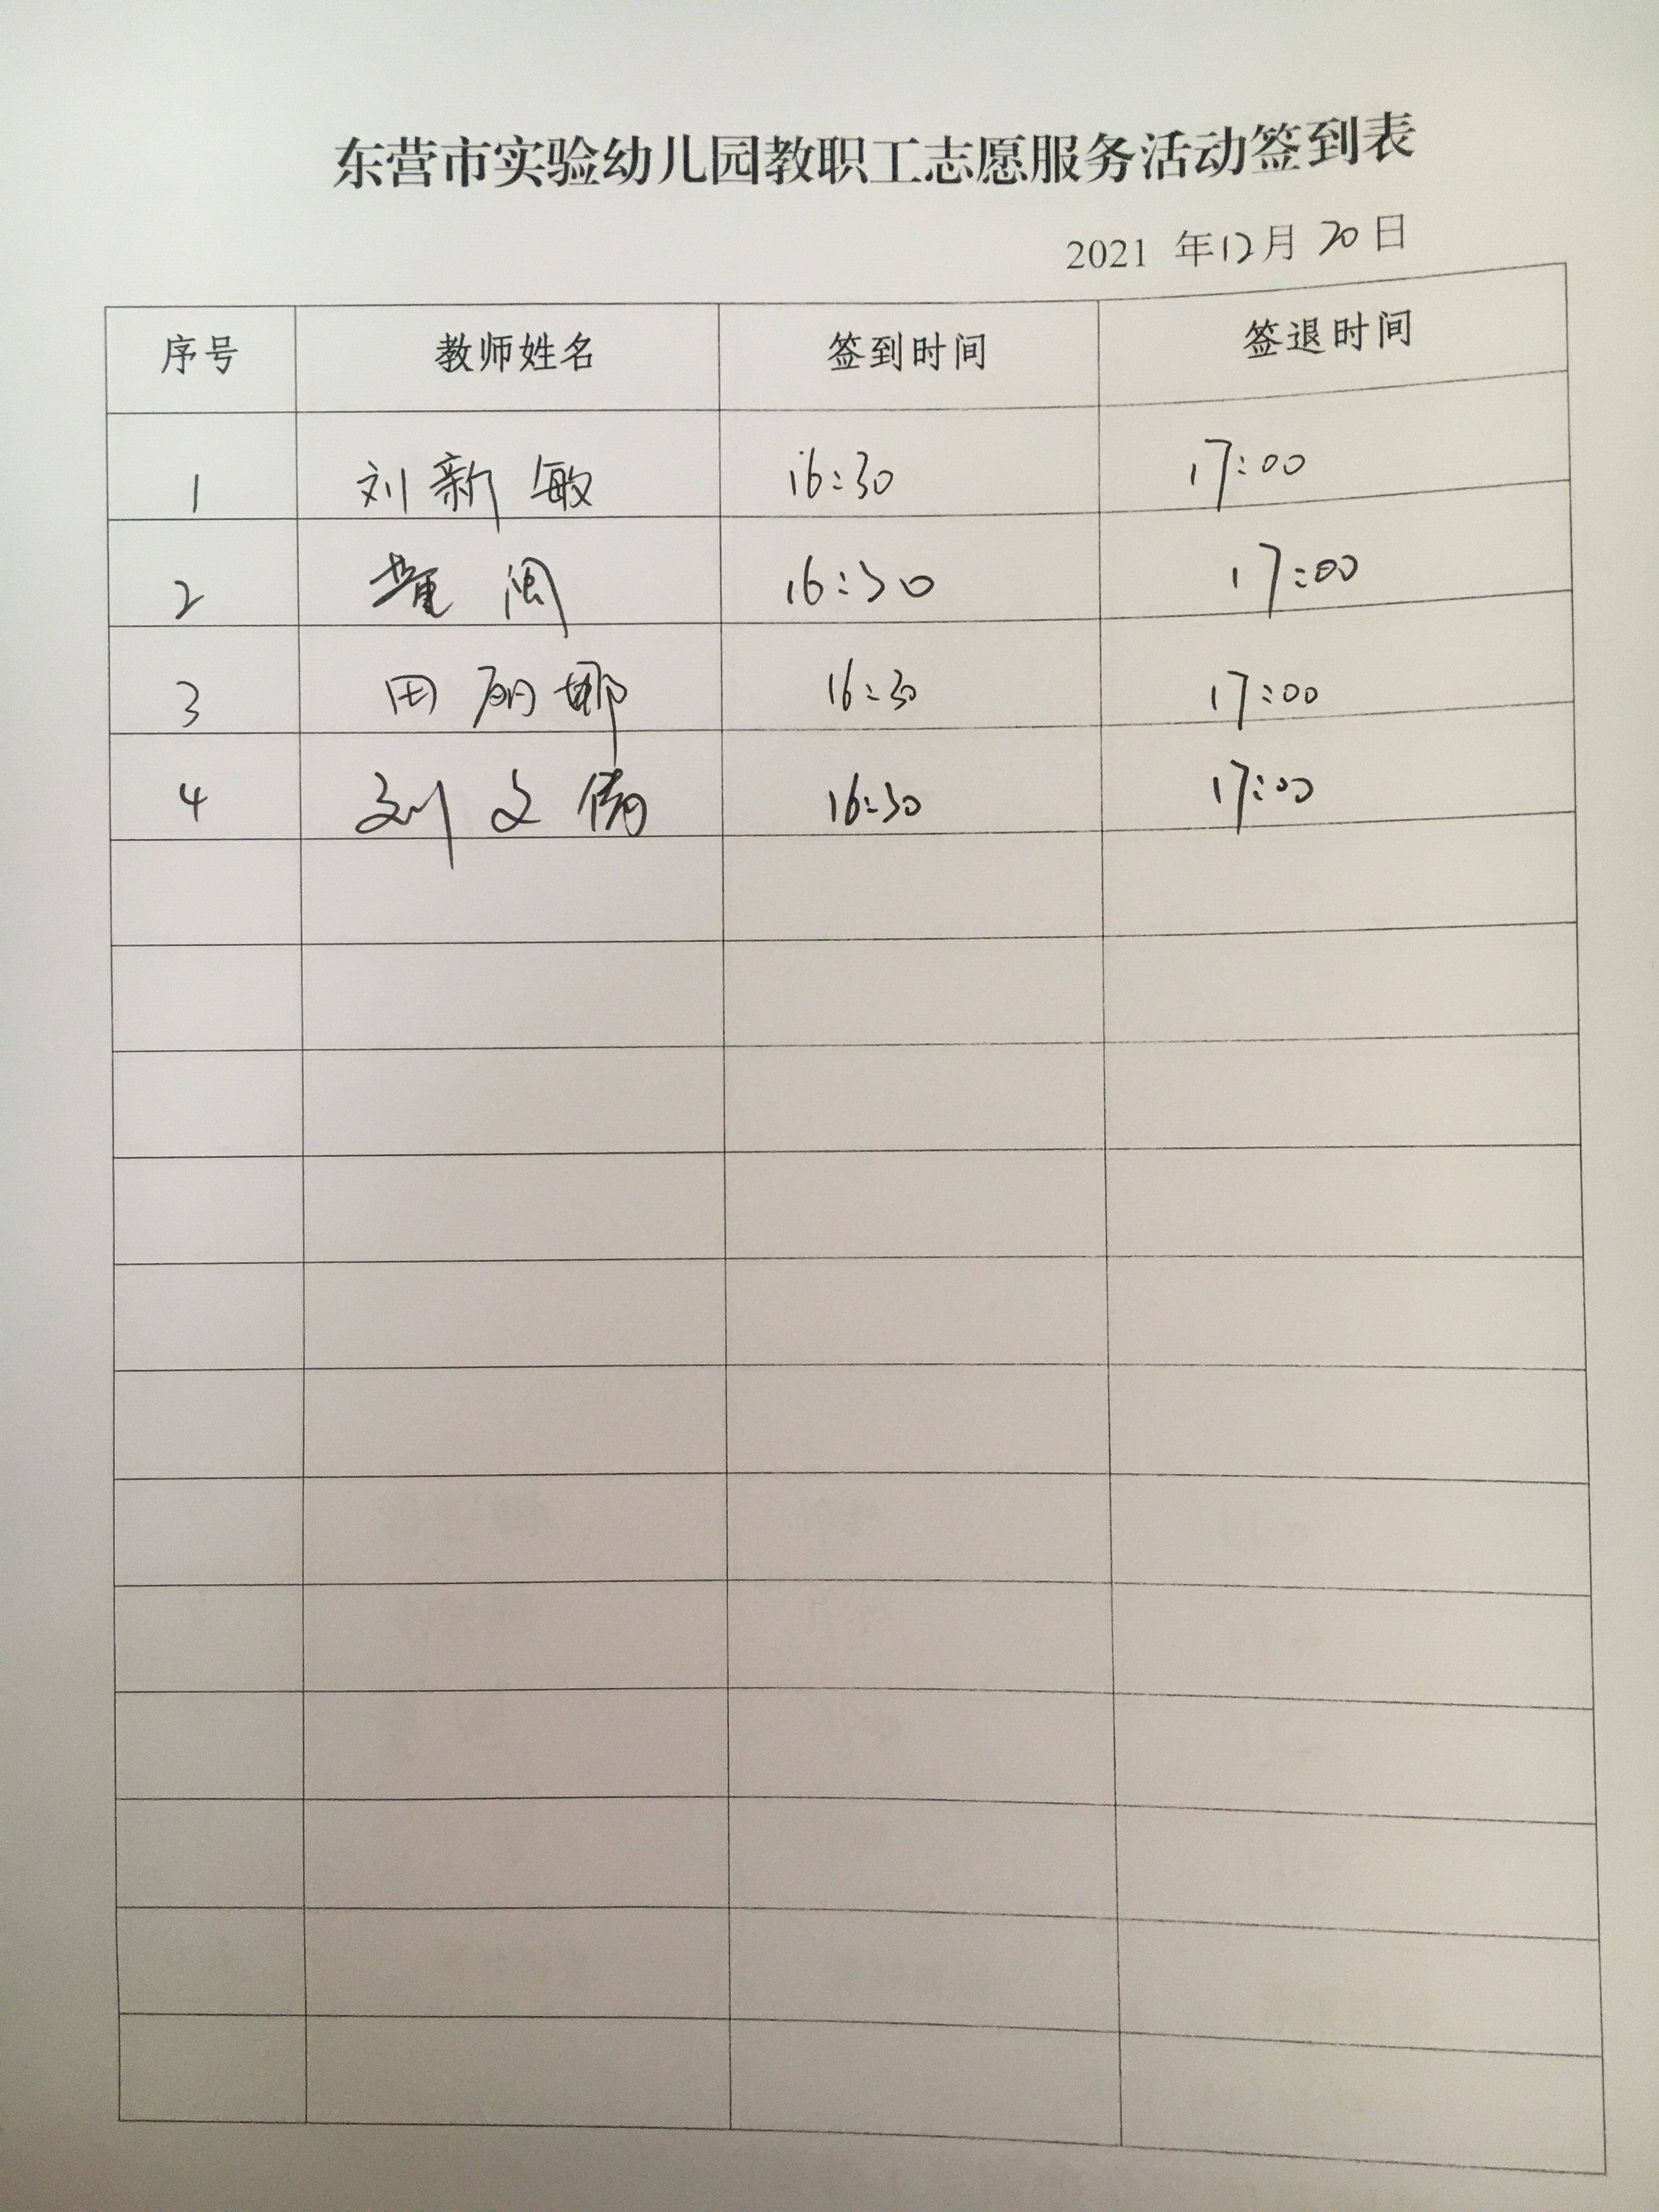 东营市实验幼儿园教职工志愿服务活动签到表
2021 年12月20日
序号 教师姓名 签到时间 签退时间
1 刘新敏 16:30 17:00
2 董闽 16:30 17:00
3 田丽娜 16:30 17:00
4 刘文倩 16:30 17:00